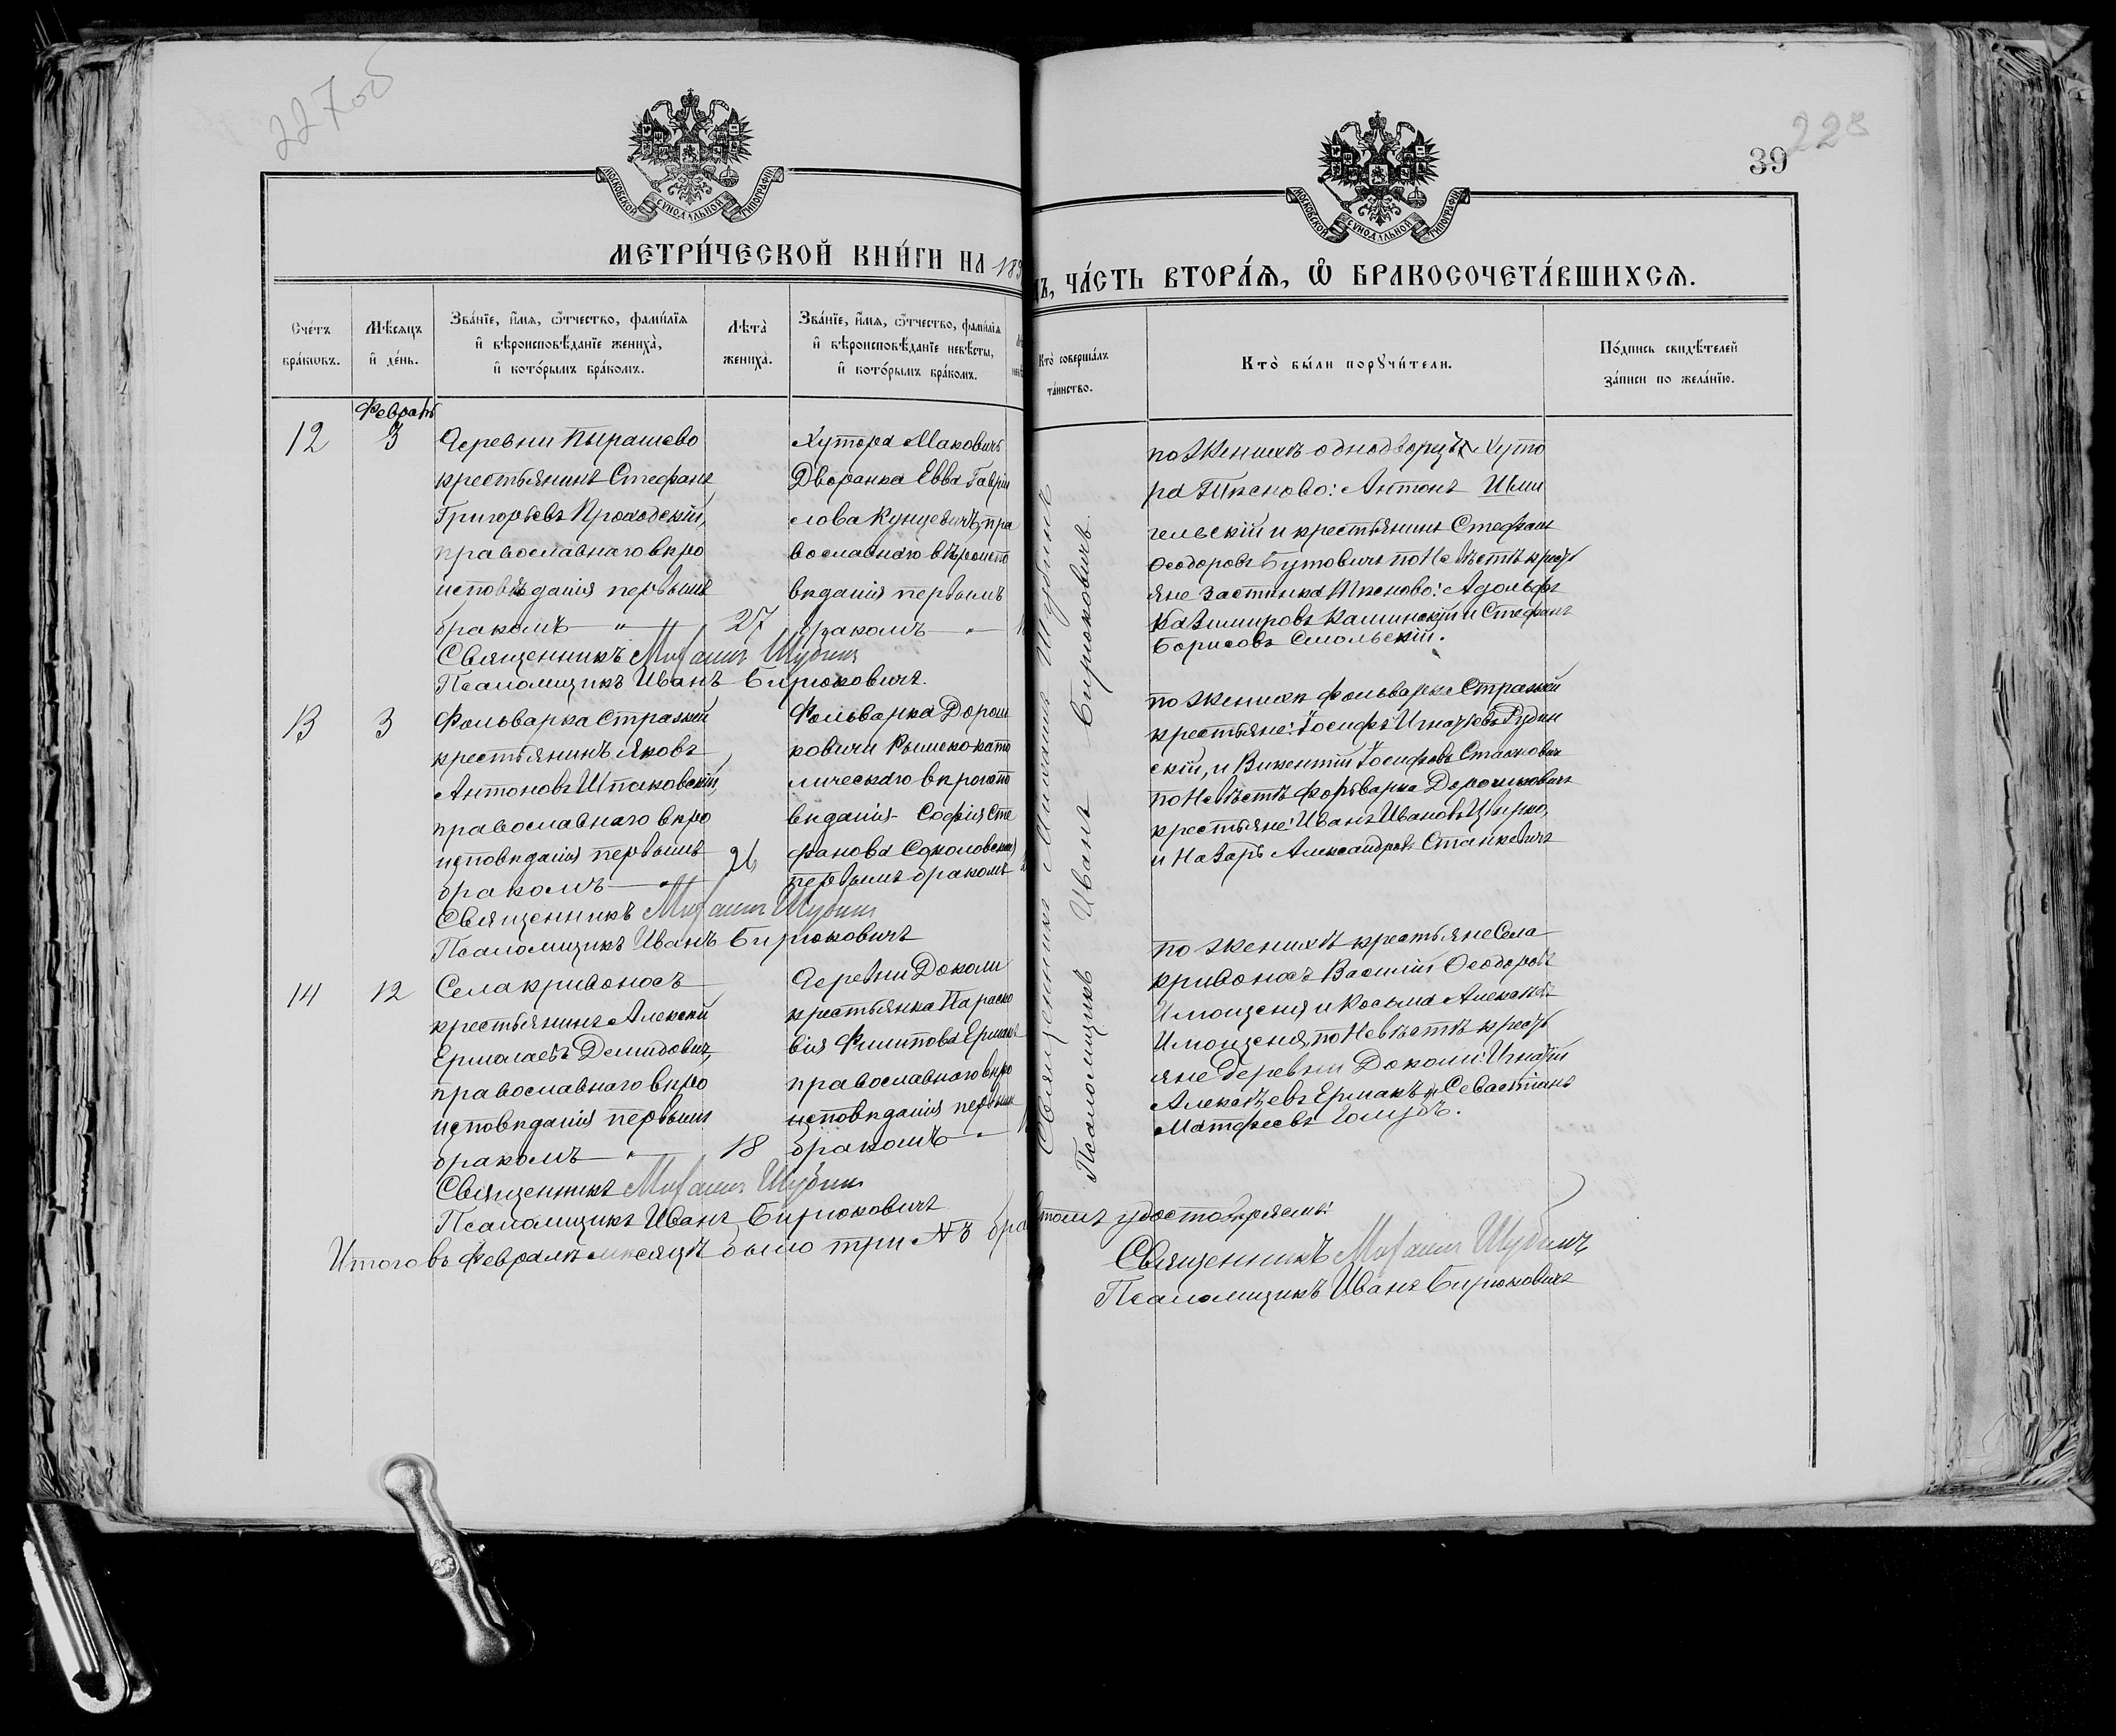 227об
МОСКОВСКОЙ СѴНОДАЛЬНОЙ ТИПОГРАФІИ
МЕТРИ́ЧЕСКОЙ КНИ́ГИ НА 189
Сче́тъ бра́кωвъ.
Мѣ́сяцъ и҆ де́нь.
Зва́нїе, и҆́мя, ѻ҆́тчество, фами́лїя и҆ вѣроисповѣ́данїе жениха̀, и҆ кото́рымъ бра́комъ.
Лѣ́та̀ жениха̀.
Зва́нїе, и҆́мя, ѻ҆́тчество, фами́лїя и҆ вѣроисповѣ́данїе невѣ́сты, и҆ кото́рымъ бра́комъ.
Февраль
12
3
Деревни Пырашево
крестьянинъ Стефанъ
Григорьевъ Проходскій,
православнаго вѣро
исповѣданія первымъ
бракомъ — " —
27
Хутора Маковичъ
Дворанка Евва Гаврiи
лова Кунцевичъ, пра
вославнаго вѣроиспо
вѣданія первымъ
бракомъ — " —
Священникъ Михаилъ Шубинъ
Псаломщикъ Иванъ Бирюковичъ.
13
3
Фольварка Стражей
крестьянинъ Яковъ
Антоновъ Шпаковскій,
православнаго вѣро
исповѣданія первымъ
бракомъ — " —
26
Фольварка Дорош
ковичи Римско-като
лическаго вѣроиспо
вѣданія Софія Сте
фанова Соколовская
первымъ бракомъ
Священникъ Михаилъ Шубинъ
Псаломщикъ Иванъ Бирюковичъ
14
12
Села Кривоносъ
крестьянинъ Алексѣй
Ермолаевъ Демидовичъ,
православнаго вѣро
исповѣданія первымъ
бракомъ — " —
18
Деревни Доколи
крестьянка Параско
вія Филипова Ермакъ
православнаго вѣро
исповѣданія первымъ
бракомъ — " —
Священникъ Михаилъ Шубинъ
Псаломщикъ Иванъ Бирюковичъ
Итого въ Февралѣ мѣсяцѣ было три № 3 бра
228
39
МОСКОВСКОЙ СѴНОДАЛЬНОЙ ТИПОГРАФІИ
ДЪ, ЧА́СТЬ ВТОРА́Я, Ѡ҆ БРАКОСОЧЕТА́ВШИХСЯ.
Кто̀ соверша́лъ та́инство.
Кто̀ бы́ли порꙋчи́тели.
По́дпись свидѣ́телей за́писи по жела́нїю.
Священникъ Михаилъ Шубинъ
Псаломщикъ Иванъ Бирюковичъ.
по Женихѣ однодворцы Хуто
ра
Антонъ Шми
гельскій и крестьянинъ Стефанъ
Ѳеодоровъ Бутовичъ по Невѣстѣ крест
яне Застѣнка
Адольфъ
Казимировъ Каминскій и Стефанъ
Борисовъ Смольскій.
по Женихѣ фольварка Стражей
крестьяне: Іосифъ Игнатьевъ Рудин
скій, и Викентій Іосифовъ Стахновичъ
по Невѣстѣ Фольварка Дорошковичъ
крестьяне: Иванъ Ивановъ Цвирко,
и Назарѣ Александровъ Станкевичъ
по Женихѣ крестьяне Села
Кривоносъ Василій Ѳеодоровъ
Имощеня и Косьма
Имощеня, по Невѣстѣ крест
яне деревни Доколи: Игнатій
Алексѣевъ Ермакъ и Севастіанъ
Матфеевъ Голубъ.
томъ удостовѣряемъ:
Священникъ Михаилъ Шубинъ
Псаломщикъ Иванъ Бирюковичъ